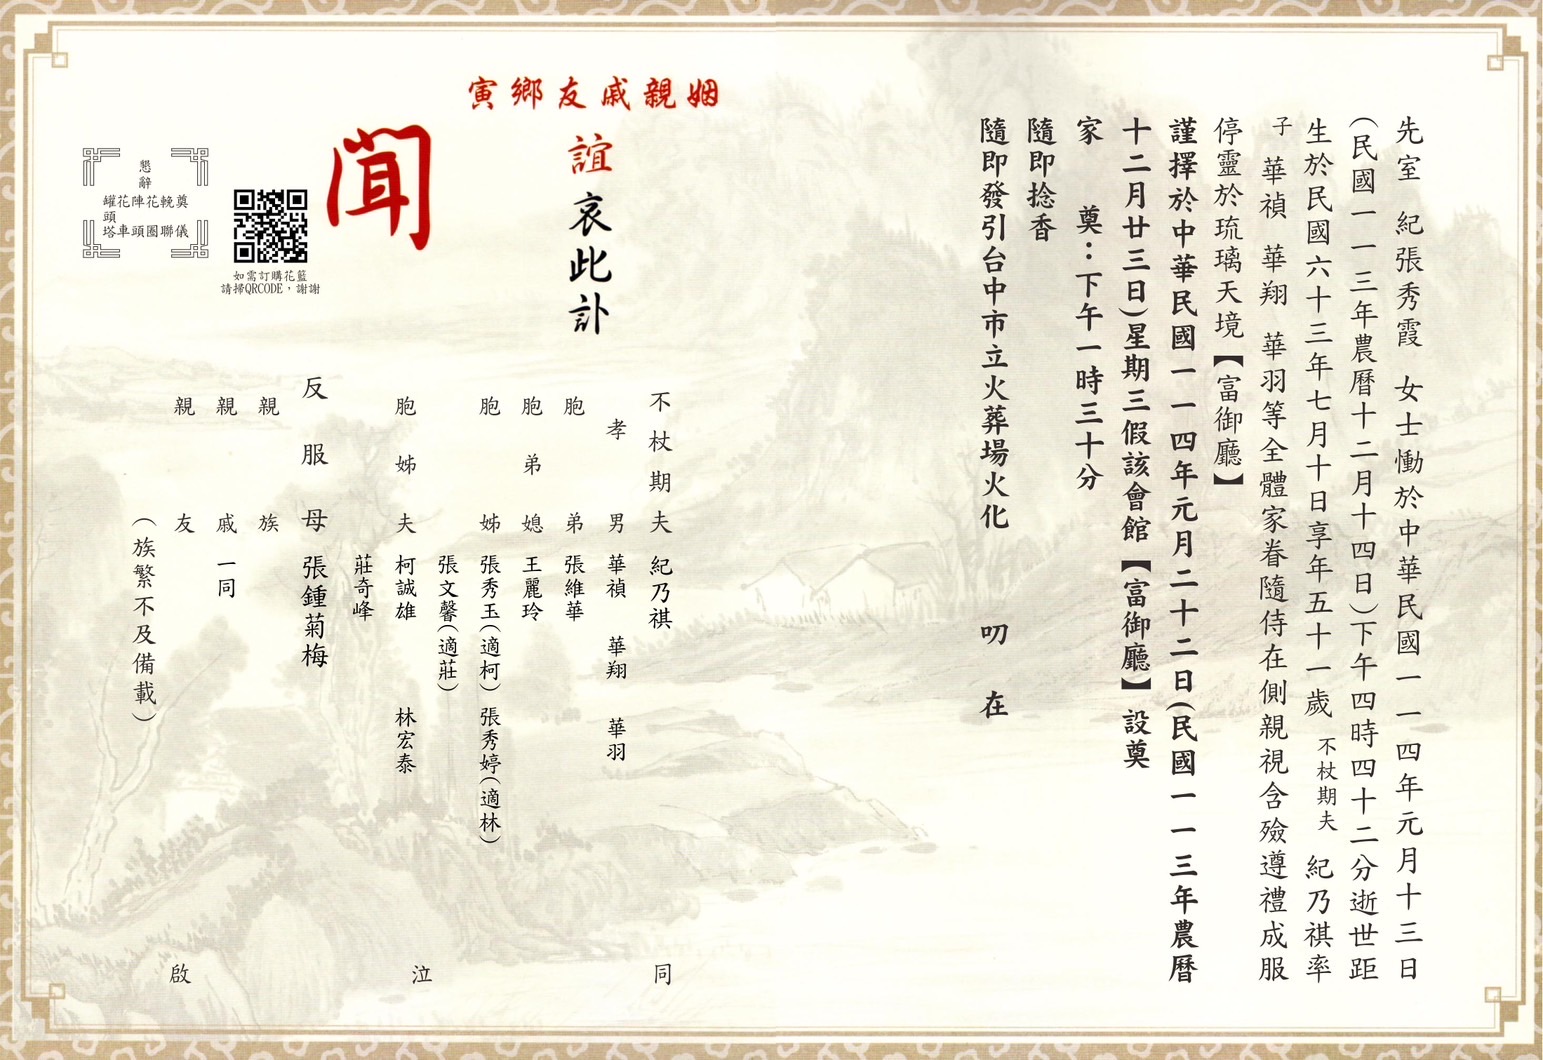 先室 紀張秀霞 女士慟於中華民國一一四年元月十三日
(民國一一三年農曆十二月十四日)下午四時四十二分逝世距
生於民國六十三年七月十日享年五十一歲 不杖期夫 紀乃祺率
子 華禎 華翔 華羽等全體家眷隨侍在側親視含殮遵禮成服
停靈於琉璃天境【富御廳】
謹擇於中華民國一一四年元月二十二日(民國一一三年農曆
十二月廿三日)星期三假該會館【富御廳】設奠
家 奠:下午一時三十分
隨即捻香
隨即發引台中市立火葬場火化 叨 在
姻親戚友鄉寅
誼哀此訃
聞
不杖期夫 紀乃祺
孝男 華禎 華翔 華羽
胞弟 張維華
胞弟媳 王麗玲
胞姊 張秀玉(適柯) 張秀婷(適林)
張文馨(適莊)
胞姊夫 柯誠雄 林宏泰
莊奇峰
反服母 張鍾菊梅
親族
親戚 一同
親友
(族繁不及備載)
同泣啟
懇辭
奠輓花陣花罐頭
儀聯團頭車塔
如需訂購花籃
請掃QRCODE,謝謝